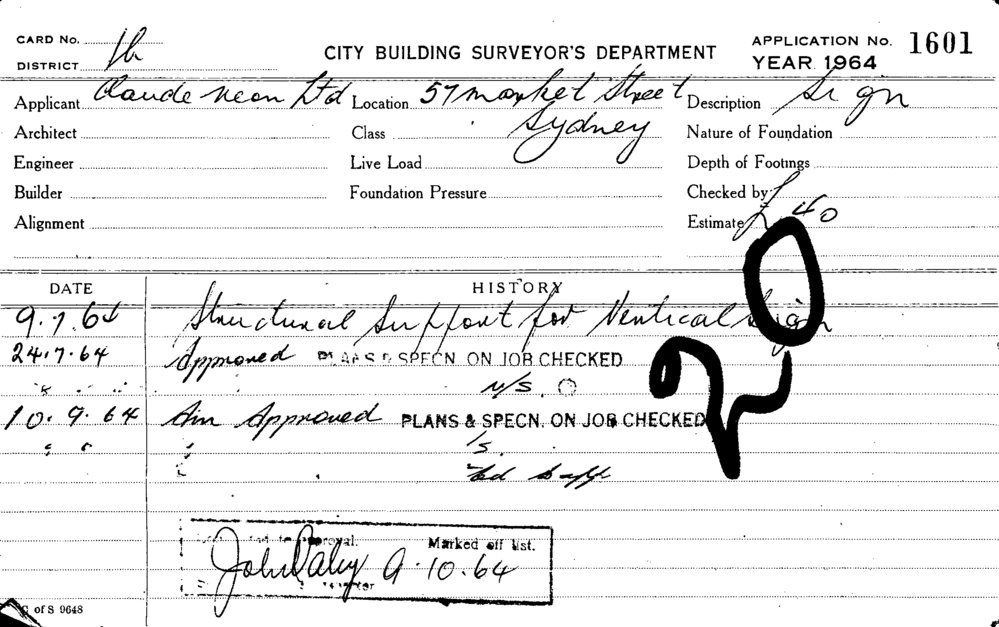 CARD No. 1b
DISTRICT
CITY BUILDING SURVEYOR'S DEPARTMENT
APPLICATION No. 1601
YEAR 1964
Applicant Claude Neon Ltd Location 57 Market Street Description Sign
Architect Class Sydney Nature of Foundation
Engineer Live Load Depth of Footings
Builder Foundation Pressure Checked by
Alignment Estimate £40
DATE HISTORY
9.7.64 Structural Support for Vertical Sign
24.7.64 Approved PLANS & SPECN. ON JOB CHECKED
N/S.
10.9.64 Am Approved PLANS & SPECN. ON JOB CHECKED
/S.
approval. Marked off list.
John Daley 9.10.64
C of S 9648